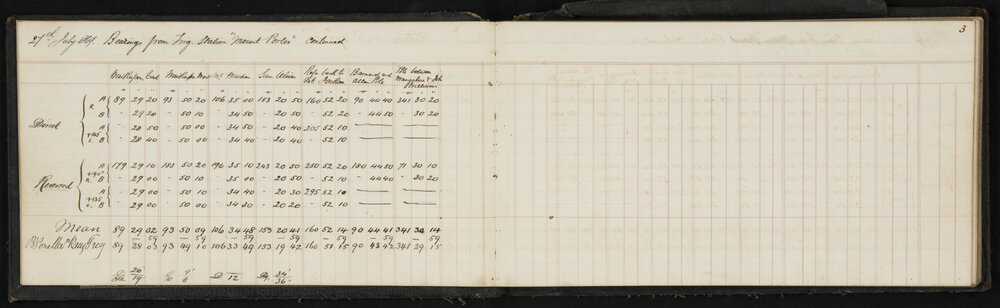 3
27th July 1864. Bearings from Trig. Station "Mount Porter" Continued
East Mt. Mackan Alvin back to Barnavend and Hill between
Pole &
A 89 29 20 93 50 20 106 35 00 153 20 50 160 52 20 90 44 40 341 30 20
R. B " 29 20 - 50 10 - 34 50 - 20 50 - 52 20 - 44 50 - 30 20
Direct
A - 28 50 - 50 00 - 34 50 - 20 40 205 52 10
+45
L. B - 28 40 - 50 00 - 34 40 - 20 40 - 52 10
A 179 29 10 183 50 20 196 35 10 243 20 50 250 52 20 180 44 50 71 30 10
+90°
R. B - 29 00 - 50 10 - 35 00 - 20 50 - 52 10 - 44 40 - 30 20
Reversed
A - 29 00 - 50 10 - 34 40 - 20 30 295 52 10
+135
L. B - 29 00 - 50 00 - 34 30 - 20 20 - 52 10
Mean 89 29 02 93 50 09 106 34 48 153 20 41 160 52 14 90 44 41 341 30 14
— 59 — 59 — 59 — 59
89 28 03 93 49 10 106 33 49 153 19 42 160 51 15 90 43 42 341 29 15
20 9 34
19 8 12 36